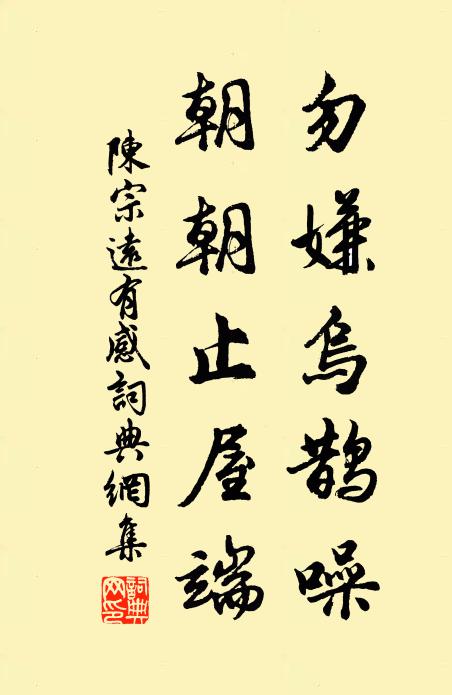 勿嫌烏鵲噪
朝朝止屋端
陳宗遠有感詞典網集
詞典網印